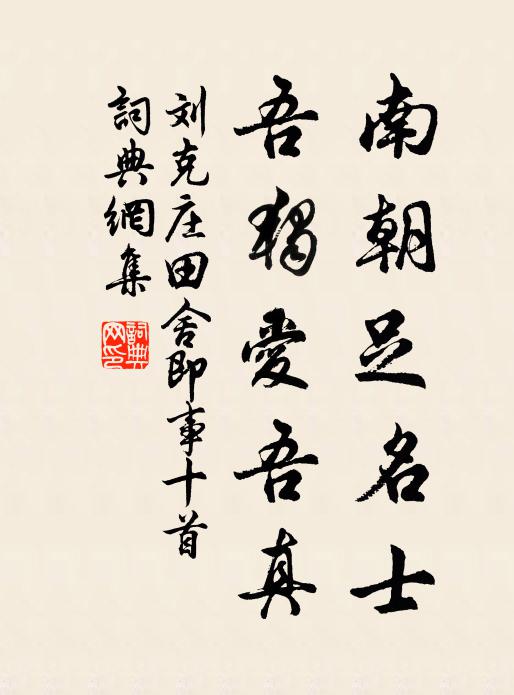 南朝足名士
吾独愛吾真
刘克庄田舍即事十首
詞典網集
詞典网印